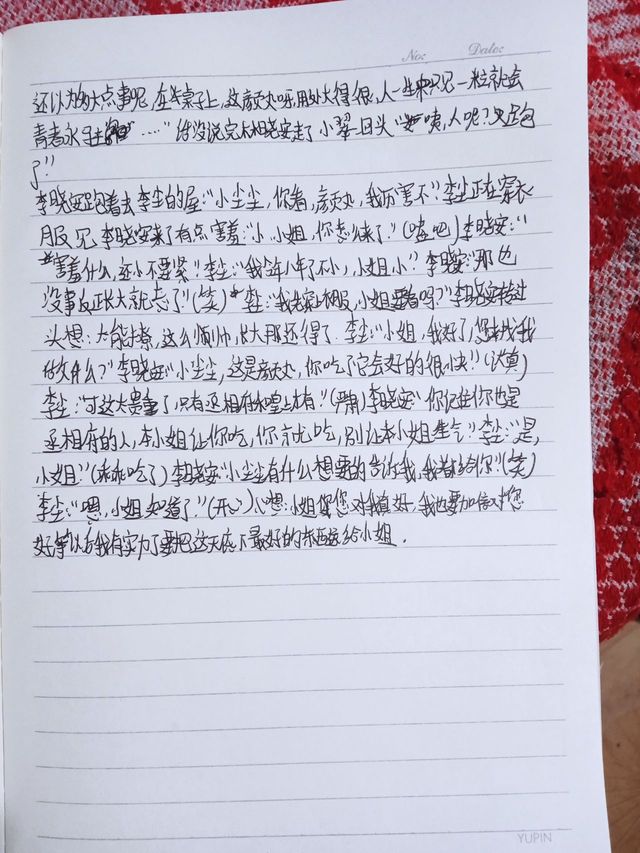 No:
Date:
还以为多大点事呢,在半桌子上,这颜灵丸呀,用处大得很,人一生中只见一粒就会
青春永驻……"话没说完李晓安走了 小翠一回头"咦,人呢?又跑
了!!
李晓安跑着去李尘的屋:"小尘尘,你看,颜灵丸,我厉害不"李尘正在穿衣
服 见 李晓安来了有点害羞:"小、小姐,你怎么来了"(嗑吧)李晓安:"
害羞什么,还小不要紧"李尘:"我今年八年了不小,小姐小"李晓安:"那也
没事反正长大就忘了"(笑)李尘:"我先穿衣服,小姐要看吗?"李晓安转过
头想:太能撩,这么顺帅,长大那还得了 李尘:"小姐,我好了,您来找我
做什么?"李晓安:"小尘尘,这是颜灵丸,你吃了它会好的很快!"(认真)
李尘:"可这太贵重了,只有丞相府和皇上才有"(严肃)李晓安:"你记住你也是
丞相府的人,本小姐让你吃,你就吃,别让本小姐生气"李尘:"是,
小姐"(乖乖吃了)李晓安:"小尘尘有什么想要的告诉我,我都给你"(笑)
李尘:"嗯,小姐知道了"(开心)心想:小姐您对我真好,我也要加倍对您
好等以后我有实力了要把这天底下最好的东西送给小姐.
YUPIN